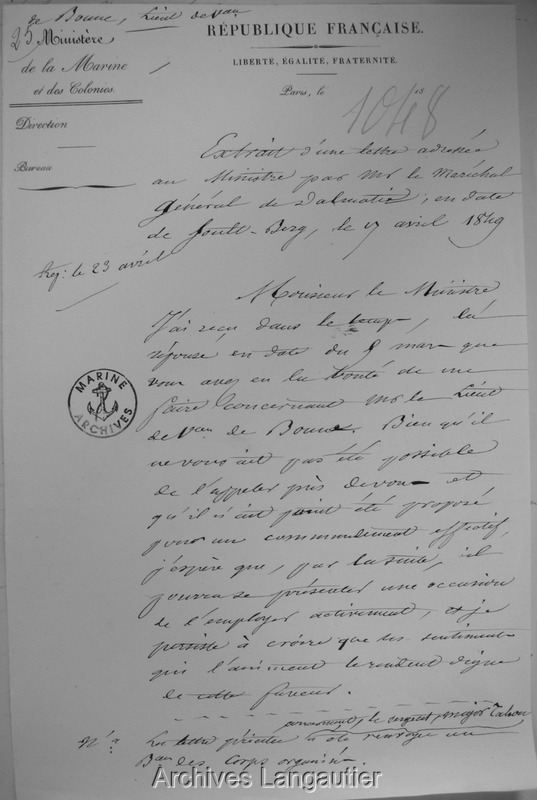 de Bonne, Lieut de Vau
25
Ministère
de la Marine
et des Colonies.
Direction
Bureau
RÉPUBLIQUE FRANÇAISE.
LIBERTÉ, ÉGALITÉ, FRATERNITÉ.
Paris, le 18
1048
Extrait d'une lettre adressée
au Ministre par Mr le Maréchal
Général de Dalmatie, en date
de Soult-Berg, le 17 avril 1849
Rep: le 23 avril
Monsieur le Ministre
J'ai reçu dans le temps, la
réponse en date du 5 mars que
vous avez eu la bonté de me
faire concernant Mr le Lieut
de Vau de Bonne. Bien qu'il
ne vous ait pas été possible
de l'appeler près de vous et
qu'il n'ait point été proposé
pour un commandement effectif,
j'espère que, par la suite, il
pourra se présenter une occasion
de l'employer activement, et je
persiste à croire que les sentiments
qui l'animent le rendent digne
de cette faveur.
concernant le sergent major
Na La lettre précitée a été renvoyée au
Bau des Corps organisés.
MARINE
ARCHIVES
Archives Langautier